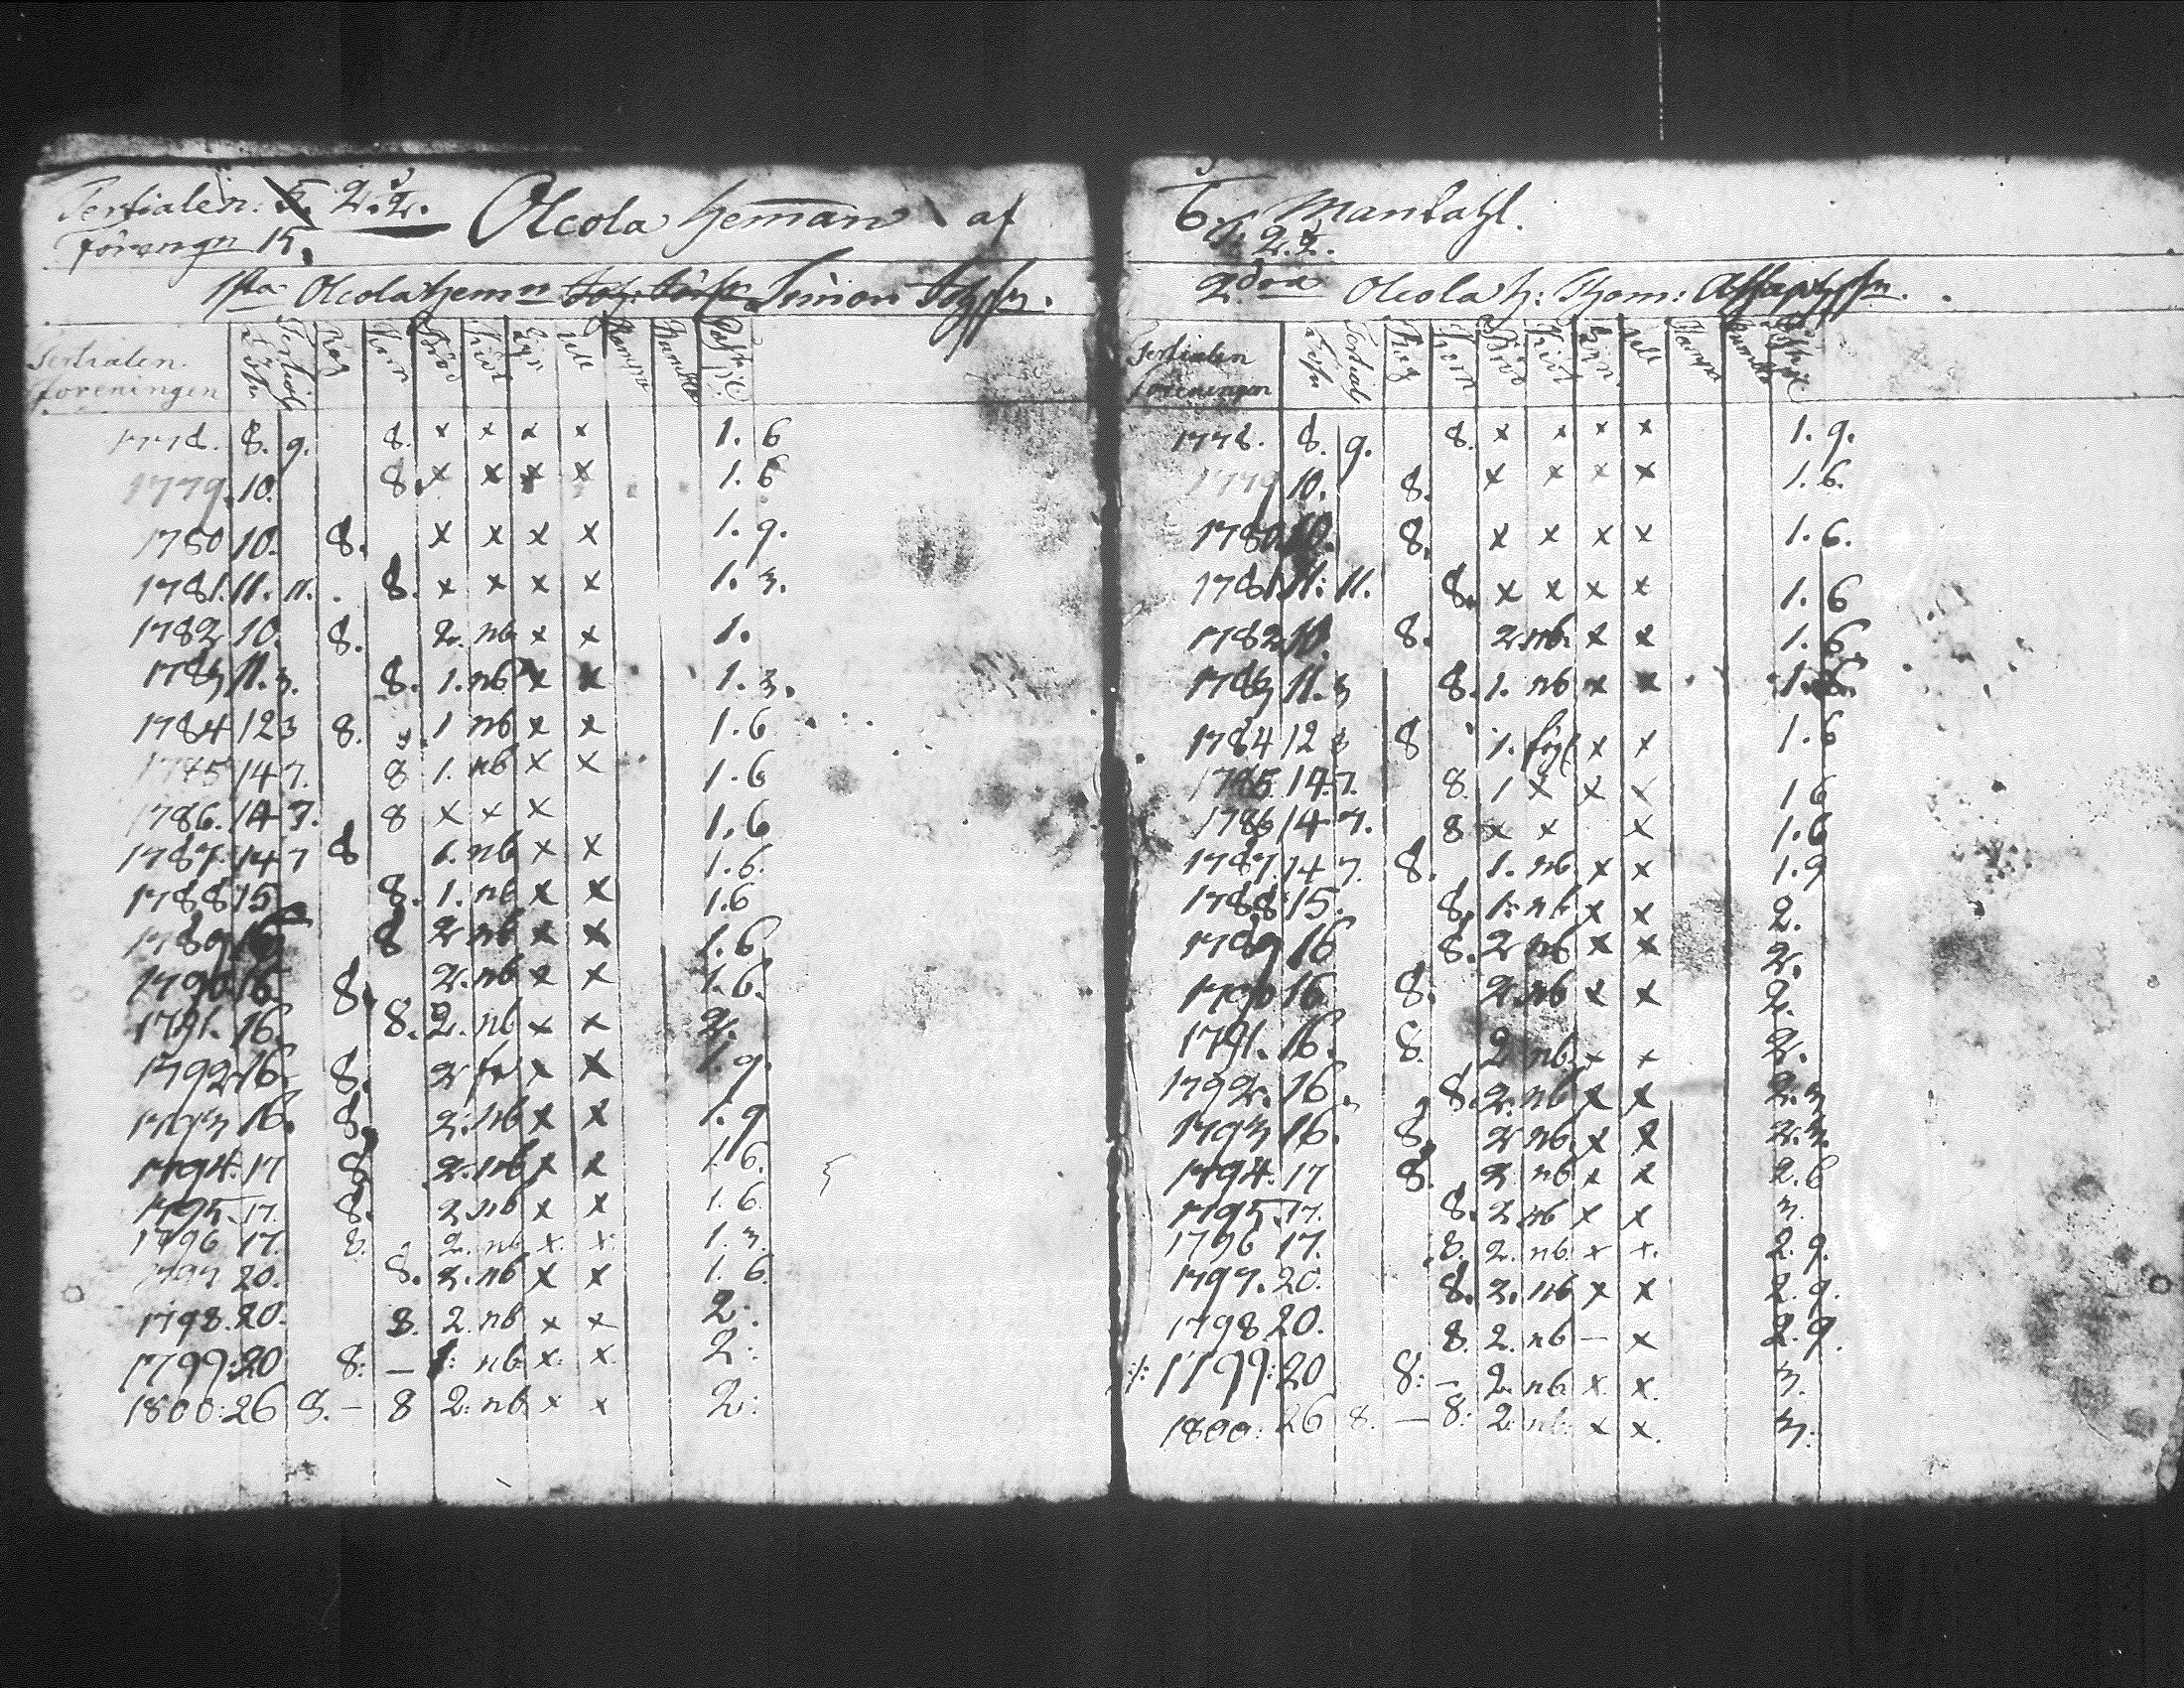 Tertialen: 5. 2.2.
förengn 15.
Olcola heman af
1sta Olcola hemn Simon
Tertialen
föreningen
1778. 8. 9. 8. x x x x 1. 6
1779. 10. 8. x x x x 1. 6
1780 10. 8. x x x x 1. 9.
1781. 11. 11. 8. x x x x 1. 3.
1782 10. 8. 2. nb x x 1.
1783 11. 3. 8. 1. nb x x 1. 3.
1784 12 3 8. 1 nb x x 1. 6
1785 14 7. 8 1. nb x x 1. 6
1786. 14 7. 8 x x x 1. 6
1787. 14 7 8 1. nb x x 1. 6.
1788 15 8. 1. nb x x 1.6
1789 16 8 2 nb x x 1. 6
1790 16 8. 2. nb x x 1. 6.
1791. 16. 8. 2. nb x x 2.
1792 16. 8. 2 x x 1. 9.
1793 16. 8. 2: nb x x 1. 9
1794. 17 8 2. nb x x 1 6.
1795. 17. 8. 2 nb x x 1. 6
1796 17. 8. 2. nb x. x. 1. 3.
1797 20. 8. 2. nb x x 1. 6
1798. 20. 8. 2. nb x x 2.
1799: 20 8: — 1: nb x: x 2:
1800: 26 8. — 8 2: nb x x 2:
6. Mantahl.
2.2.
2dra Olcola h: Thom:
Tertialen
föreningen
1778. 8. 9. 8. x x x x 1. 9.
1779 10. 8. x x x x 1. 6.
1780 10. 8. x x x x 1. 6.
1781 11: 11. 8. x x x x 1. 6
1782 10. 8. 2 nb. x x 1. 6
1783 11. 3 8. 1. nb x x 1. 6.
1784 12 3 8 1. x x 1. 6
1785. 14 7. 8. 1 x x x 1 6
1786 14 7. 8 x x x 1. 6
1787. 14 7. 8. 1. nb x x 1. 9
1788 15. 8. 1. nb x x 2.
1789 16 8. 2 nb x x 2.
1790 16 8. 2. nb x x 2.
1791. 16. 8. 2 nb. x x 2.
1792. 16. 8. 2. nb x x 2. 3
1793 16. 8. 2 nb. x x 2. 3.
1794. 17 8. 2 nb x x 2. 6
1795 17. 8. 2 nb x x 3.
1796 17. 8. 2. nb x x. 2. 9.
1797. 20. 8. 2. nb x x 2. 9.
1798 20. 8. 2. nb — x 2. 9.
1799: 20 8: — 2. nb x. x. 3.
1800: 26 8. — 8: 2: nb: x x. 3.